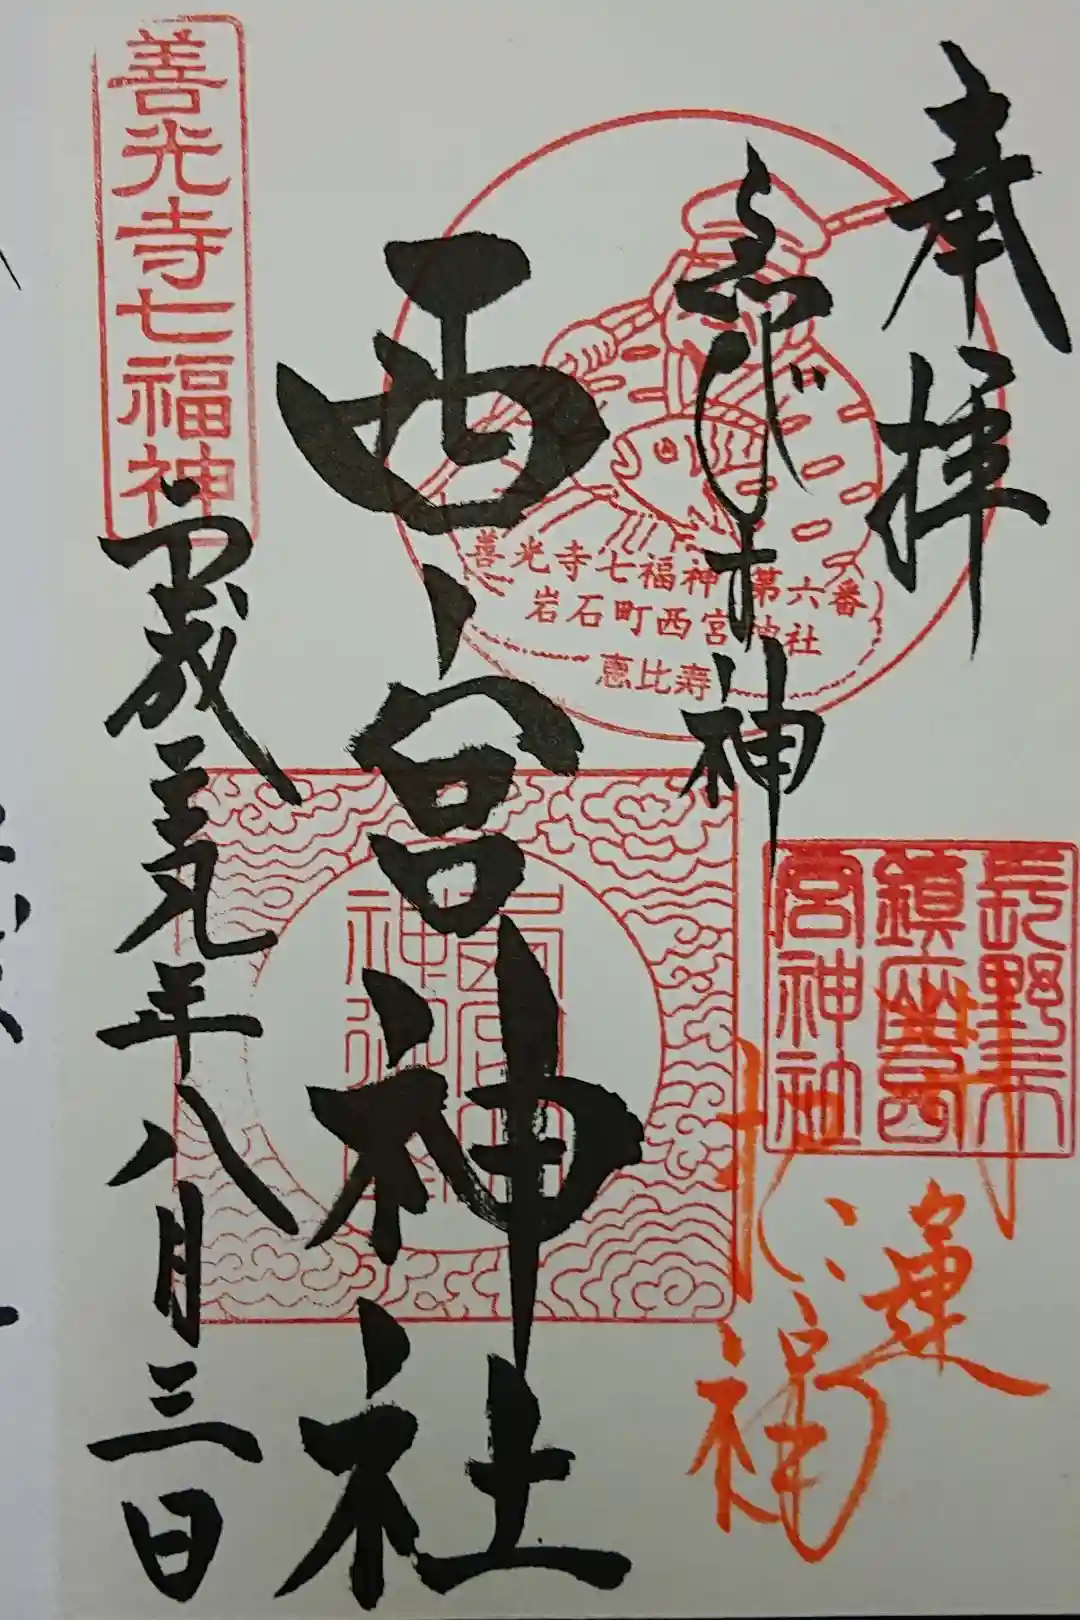 奉拝
開運
招福
長野市
鎮座西
宮神社
ゑびす神
善光寺七福神 第六番
岩石町西宮神社
恵比寿
西宮神社
善光寺七福神
平成二九年八月三日